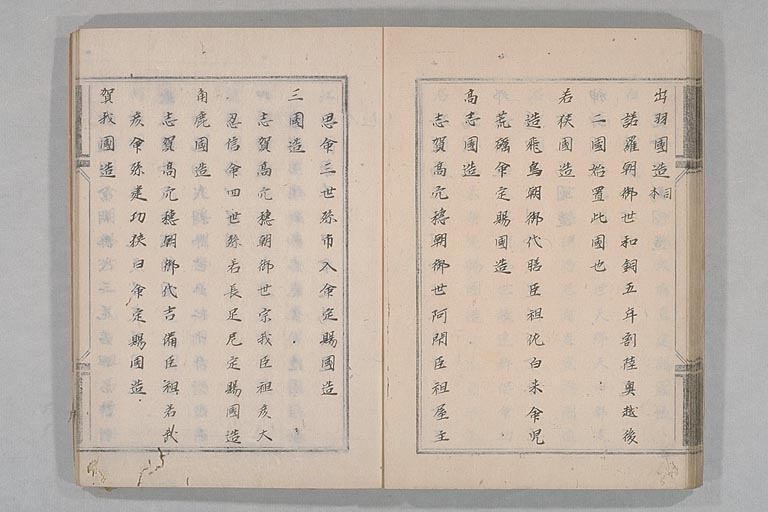 出羽國造 本同
諾羅朝御世和銅五年割陸奥越後
二國始置此國也
若狭國造
造飛鳥朝御代膳臣祖佐白米命児
荒礪命定賜國造
高志國造
志賀高穴穂朝御世阿閇臣祖屋主
思命三世孫市入命定賜國造
三國造
志賀高穴穂朝御世宗我臣祖彦大
忍信命四世孫若長足尼定賜國造
角鹿國造
志賀高穴穂朝御代吉備臣祖若武
彦命孫建功狭日命定賜國造
賀我國造